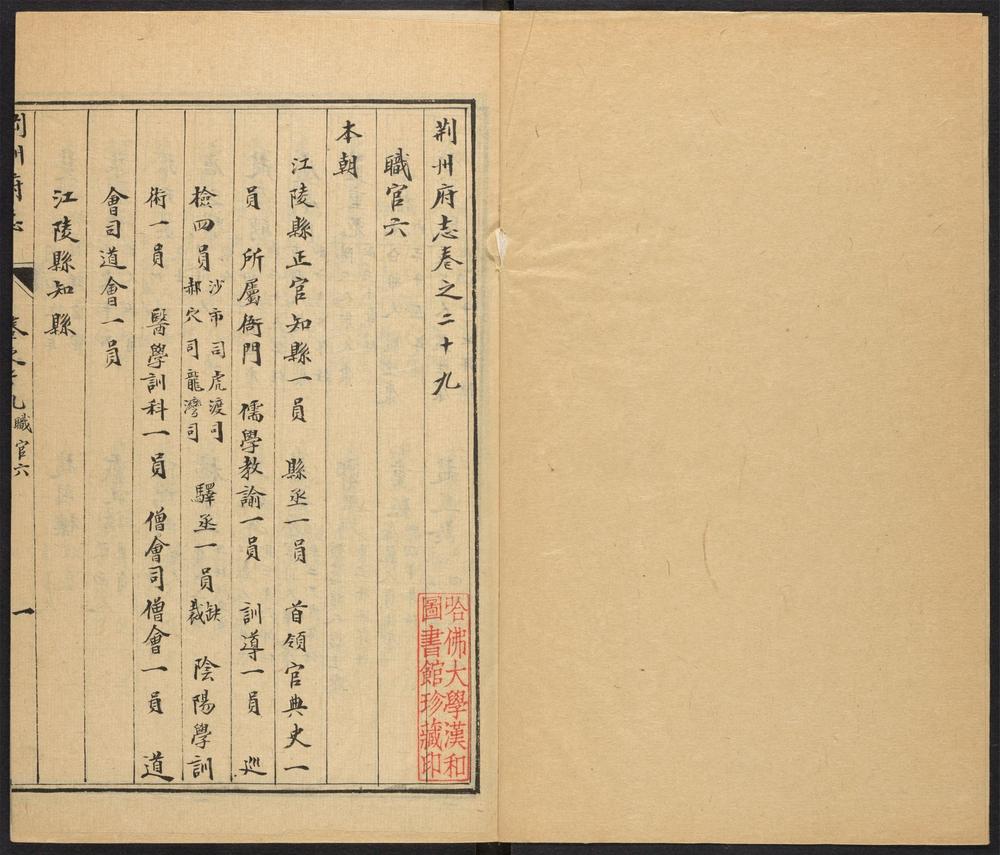 荆州府志卷之二十九
職官六
本朝
江陵縣正官知縣一員 縣丞一員 首領官典史一
員 所屬衙門 儒學教諭一員 訓導一員 巡
檢四員 沙市司虎渡司
郝穴司龍灣司 驛丞一員 缺
裁 陰陽學訓
術一員 醫學訓科一員 僧會司僧會一員 道
會司道會一員
江陵縣知縣
荆州府志 卷之二十九 職官六 一
哈佛大學漢和
圖書館珍藏印